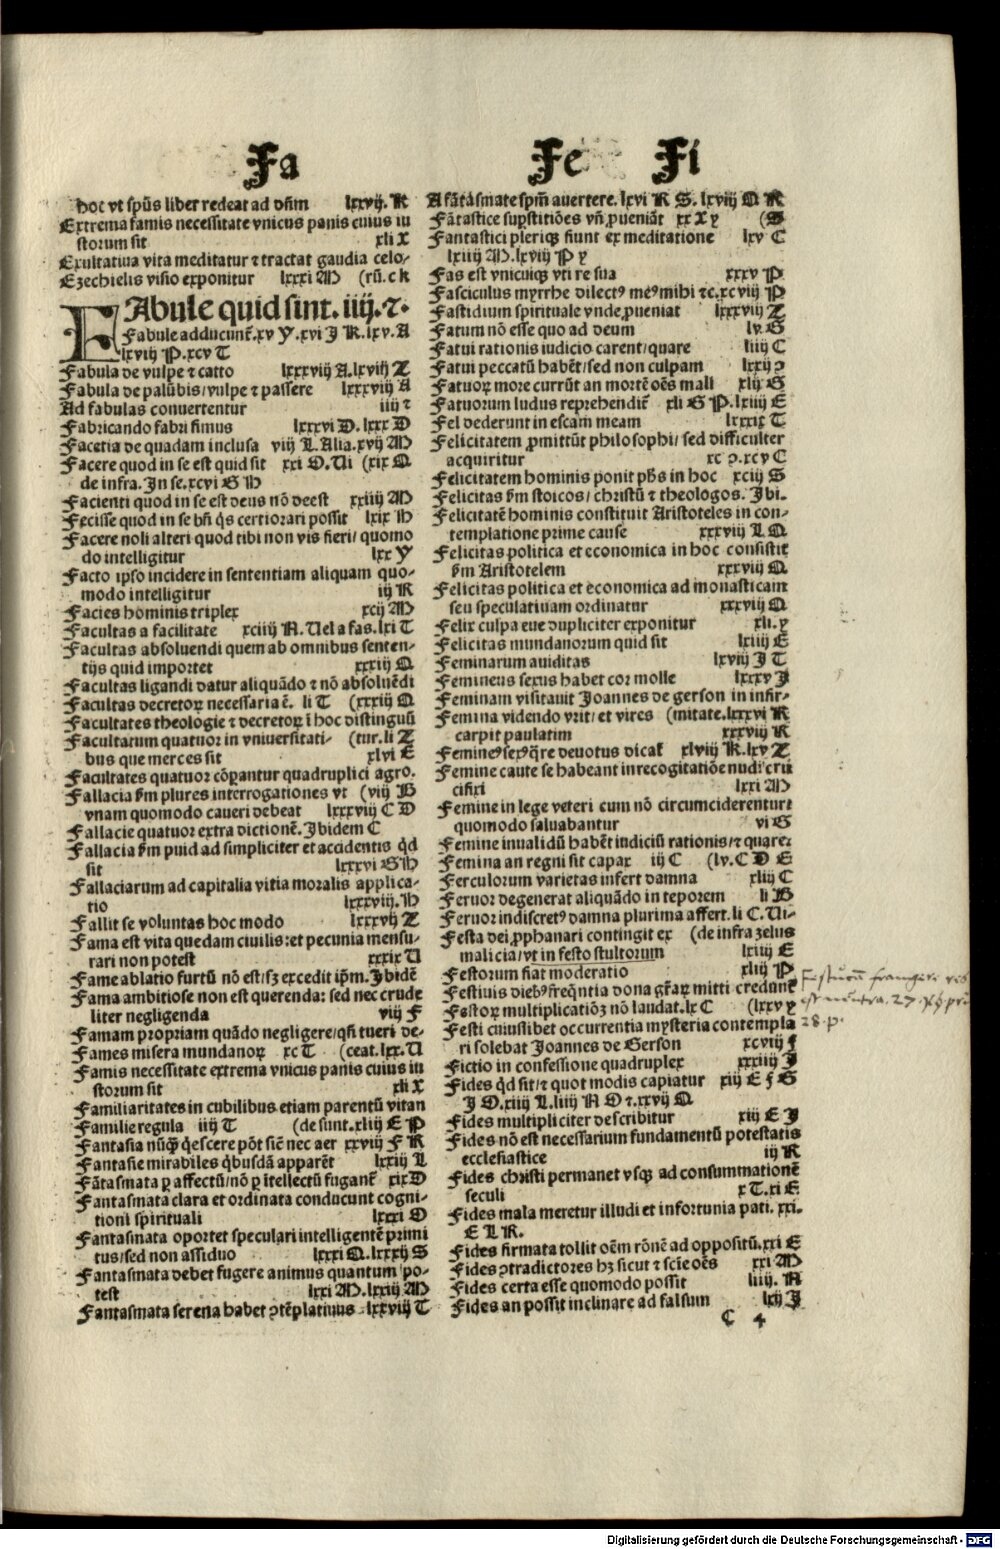 Fa
hoc vt spūs liber redeat ad dn̄m lxxvij. K
Extrema famis necessitate vnicus panis cuius iu
storum sit xli X
Exultatiua vita meditatur ⁊ tractat gaudia celo-
Ezechielis visio exponitur lxxxi M (rū. c k
FAbule quid sint. iiij. ⁊.
Fabule adducunt̄. xv Y. xvi J K. lxv. A
lxviij P. xcv T
Fabula de vulpe ⁊ catto lxxxviij A. lxviij Z
Fabula de palūbis/ vulpe ⁊ passere lxxxviij A
Ad fabulas conuertentur iiij ⁊
Fabricando fabri fimus lxxxvi D. lxxx D
Facetia de quadam inclusa viij L Alia. xvij M
Facere quod in se est quid sit xxi O. Ui (xix Q
de infra. In se. xcvi G H
Facienti quod in se est deus nō deest xxiiij M
Fecisse quod in se hn̄ q̄s certiorari possit lxix H
Facere noli alteri quod tibi non vis fieri/ quomo
do intelligitur lxx Y
Facto ipso incidere in sententiam aliquam quo-
modo intelligitur iij K
Facies hominis triplex xcij M
Facultas a facilitate xciiij N. Uel a fas. lxi T
Facultas absoluendi quem ab omnibus senten-
tijs quid importet xxxiij Q
Facultas ligandi datur aliquādo ⁊ nō absoluēdi
Facultas decretoꝝ necessaria ē. li T (xxxiij Q
Facultates theologie ⁊ decretoꝝ ī hoc distinguū
Facultatum quatuor in vniuersitati- (tur. li Z
bus que merces sit xlvi E
Facultates quatuor cōpantur quadruplici agro.
Fallacia ẜm plures interrogationes vt (viij B
vnam quomodo caueri debeat lxxxviij C D
Fallacie quatuor extra dictionē. Ibidem C
Fallacia ẜm puid ad simpliciter et accidentis qd̄
sit lxxxvi G H
Fallaciarum ad capitalia vitia moralis applica-
tio lxxxviij. H
Fallit se voluntas hoc modo lxxxvij Z
Fama est vita quedam ciuilis: et pecunia mensu-
rari non potest xxxix U
Fame ablatio furtū nō est/ sꝫ excedit ip̄m. Ibidē
Fama ambitiose non est querenda: sed nec crude
liter negligenda viij F
Famam propriam quādo negligere/ qn̄ tueri de-
Fames misera mundanoꝝ xc T (ceat. lxx. U
Famis necessitate extrema vnicus panis cuius iu
storum sit xli X
Familiaritates in cubilibus etiam parentū vitan
Familie regula iiij T (de sunt. xliij E P
Fantasia nūq̄ȝ q̄escere pōt sic̄ nec aer xxviij F K
Fantasie mirabiles q̄busdā apparēt lxxiij L
Fātasmata ꝑ affectū/ nō ꝑ ītellectū fugant̄ xix D
Fantasmata clara et ordinata conducunt cogni-
tioni spirituali lxxxi O
Fantasmata oportet speculari intelligentē primi
tus/ sed non assiduo lxxxi Q. lxxxij S
Fantasmata debet fugere animus quantum po-
test lxxi M. lxxiij M
Fantasmata serena habet ꝯtēplatiuus lxxviij T
Fe Fi
A fātasmate spm̄ auertere. lxvi R S. lxviij Q R
Fātastice suꝑstitiōes vn̄ ꝓueniāt xx X y (S
Fantastici pleriqꝫ fiunt ex meditatione lxv C
lxiiij M. lxviij P y
Fas est vnicuiqꝫ vti re sua xxxv P
Fasciculus myrrhe dilectꝰ meꝰ mihi ⁊c. xcviij P
Fastidium spirituale vnde ꝓueniat lxxxviij Z
Fatum nō esse quo ad deum lv. G
Fatui rationis iudicio carent/ quare liiij C
Fatui peccatū habēt/ sed non culpam lxxij ꝯ
Fatuoꝝ more currūt an mortē oēs mali xlij G
Fatuorum ludus reprehendit̄ xli G P. lxiiij E
Fel dederunt in escam meam lxxxix T
Felicitatem ꝓmittūt philosophi/ sed difficulter
acquiritur xc ꝯ. xcv C
Felicitatem hominis ponit ph̄s in hoc xciij S
Felicitas ẜm stoicos/ christū ⁊ theologos. Ibi.
Felicitatē hominis constituit Aristoteles in con-
templatione prime cause xxxviij L Q
Felicitas politica et economica in hoc consistit
ẜm Aristotelem xxxviij Q
Felicitas politica et economica ad monasticam
seu speculatiuam ordinatur xxxviij Q
Felix culpa eue dupliciter exponitur xli. y
Felicitas mundanorum quid sit lxiiij E
Feminarum auiditas lxviij J T
Femineus sexus habet cor molle lxxxv J
Feminam visitauit Joannes de gerson in infir-
Femina videndo vrit/ et vires (mitate. lxxxvi K
carpit paulatim xxxviij K
Femineꝰ sexꝰ q̄re deuotus dicat̄ xlviij K. lxv Z
Femine caute se habeant in recogitatiōe nudi cru
cifixi lxxi M
Femine in lege veteri cum nō circumciderentur
quomodo saluabantur vi G
Femine inualidū habēt iudiciū rationis/ ⁊ quare
Femina an regni sit capax iij C (lv. C D E
Ferculorum varietas infert damna xliij C
Feruor degenerat aliquādo in teporem li B
Feruor indiscretꝰ damna plurima affert. li C. Ui-
Festa dei ꝓphanari contingit ex (de infra zelus
malicia/ vt in festo stultorum lxiiij E
Festorum fiat moderatio xliij P
Festiuis diebꝰ freq̄ntia dona gr̄aꝝ mitti credunt̄
Festoꝝ multiplicatiōꝫ nō laudat. lx C (lxxv y
Festi cuiuslibet occurrentia mysteria contempla
ri solebat Joannes de Gerson xcviij f
Fictio in confessione quadruplex xxxiiij J
Fides qd̄ sit/ ⁊ quot modis capiatur xiij E f G
J O. xiiij L. liiij N O ⁊. xxvij Q
Fides multipliciter describitur xiij E J
Fides nō est necessarium fundamentū potestatis
ecclesiastice iij K
Fides christi permanet vsqꝫ ad consummationē
seculi x T. xi E
Fides mala meretur illudi et infortunia pati. xxi.
E L K.
Fides firmata tollit oēm rōnē ad oppositū. xxi E
Fides ꝯtradictores hꝫ sicut ⁊ scīe oēs xxi M
Fides certa esse quomodo possit liiij. N
Fides an possit inclinare ad falsum lxij J
C 4
Digitalisierung gefördert durch die Deutsche Forschungsgemeinschaft - DFG